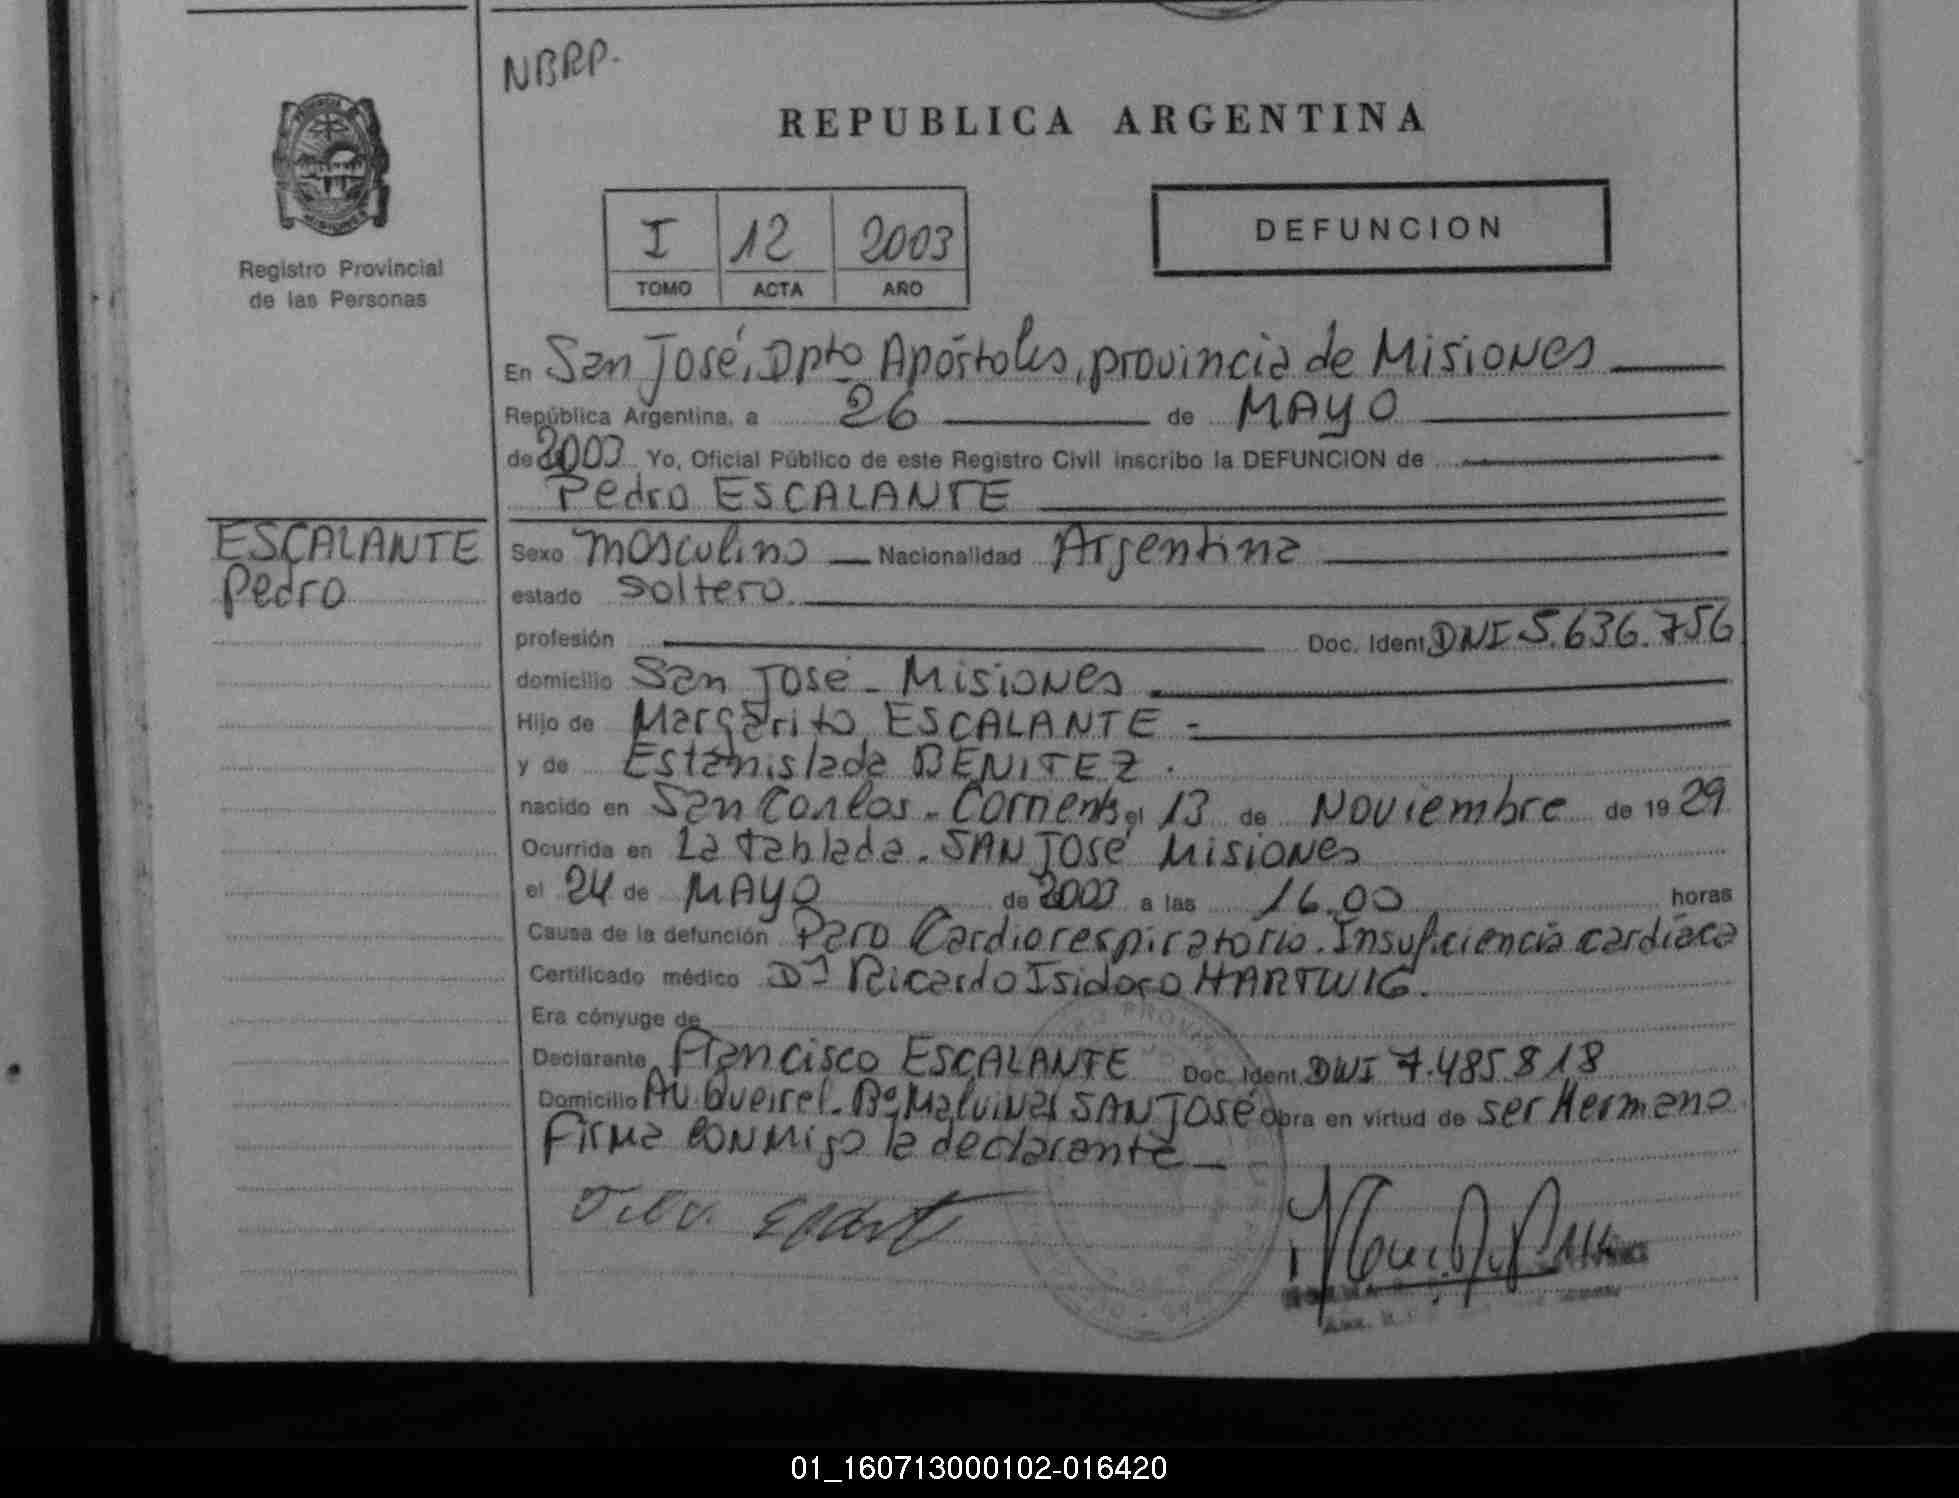 NBRP.
REPUBLICA ARGENTINA
I 12 2003
TOMO ACTA AÑO
DEFUNCION
Registro Provincial
de las Personas
En San José, Dpto Apóstoles, provincia de Misiones
República Argentina, a 26 de MAYO
de 2003 Yo, Oficial Público de este Registro Civil inscribo la DEFUNCION de
Pedro ESCALANTE
ESCALANTE
Pedro
Sexo masculino Nacionalidad Argentina
estado soltero
profesión Doc. Ident. DNI 5.636.756
domicilio San José - Misiones
Hijo de Margarito ESCALANTE
y de Estanislada BENITEZ.
nacido en San Carlos - Corrientes el 13 de Noviembre de 1929
Ocurrida en La tablada. SAN JOSÉ Misiones
el 24 de MAYO de 2003 a las 16.00 horas
Causa de la defunción Paro Cardiorespiratorio. Insuficiencia cardíaca
Certificado médico Dr Ricardo Isidoro HARTWIG.
Era cónyuge de
Declarante Francisco ESCALANTE Doc. Ident. DNI 7.485.818
Domicilio AV. Queirel. Bº Malvinas SAN JOSÉ obra en virtud de ser Hermano
Firma conmigo la declarante
01_160713000102-016420